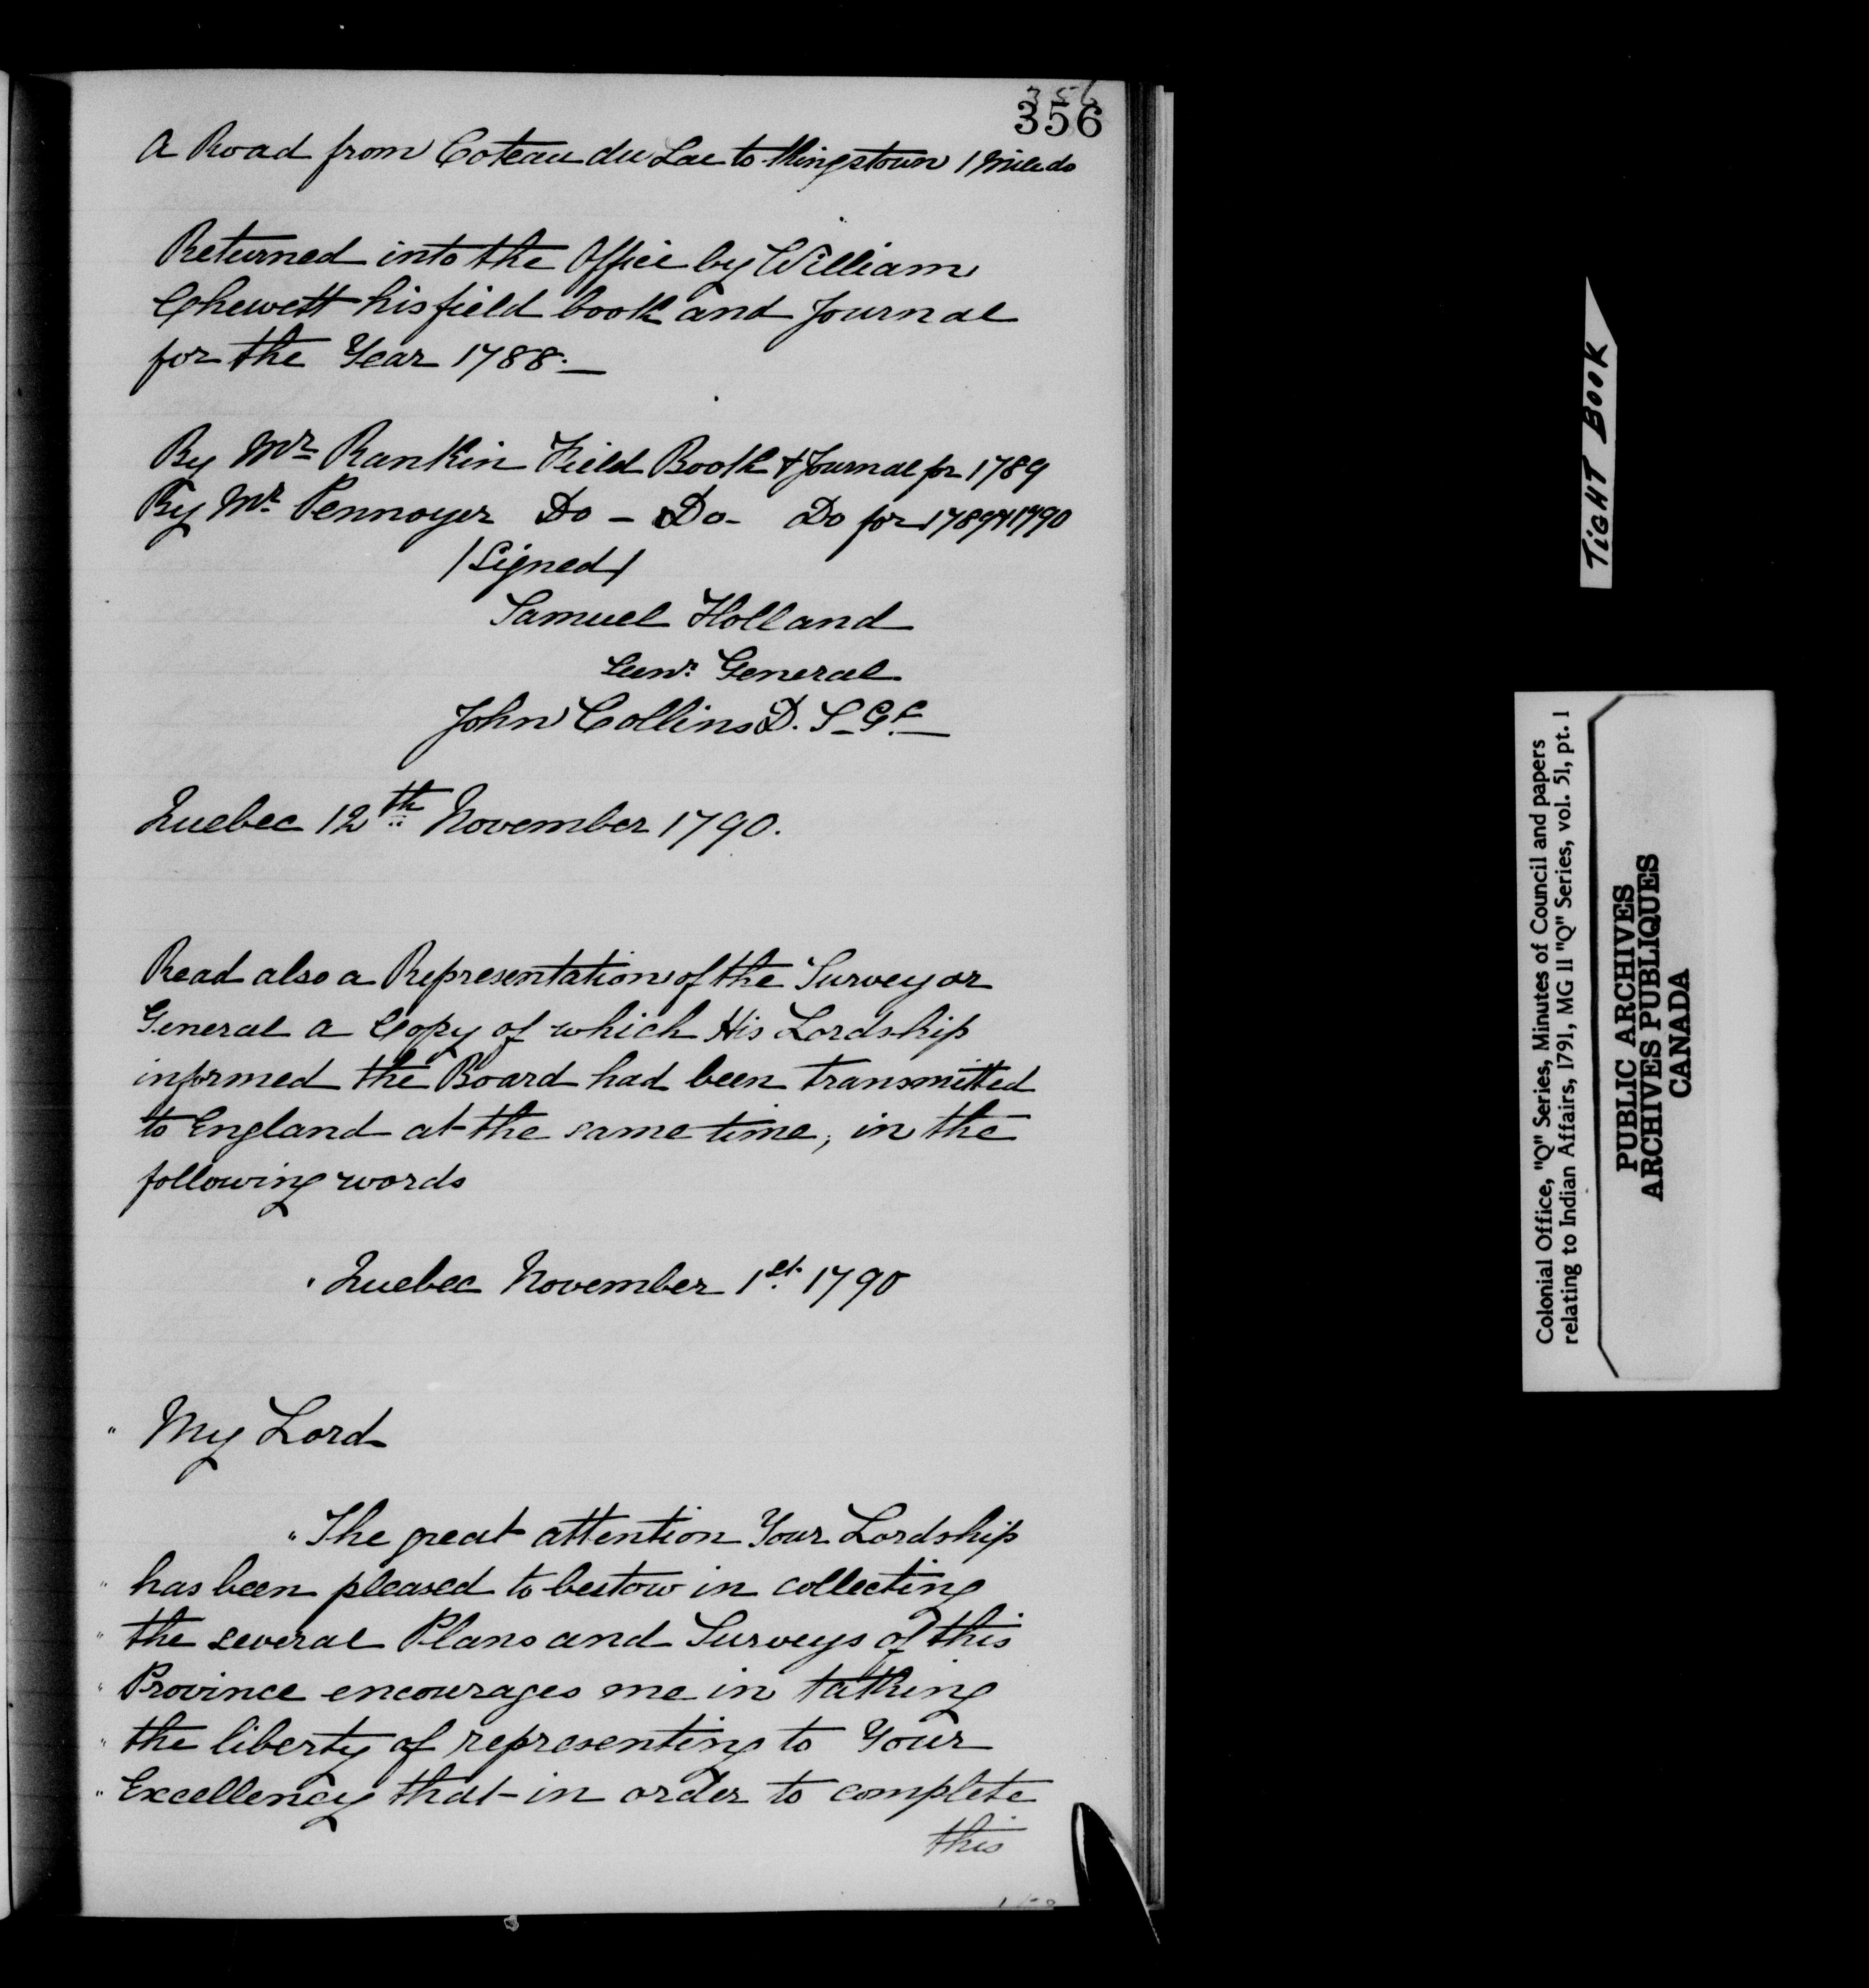 356
356
A Road from Coteau du Lac to Kingstown 1 Mile do
Returned into the Office by William
Chewett his field book and Journal
for the Year 1788.—
By Mr Rankin Field Book & Journal for 1789
By Mr Pennoyer Do – Do – Do for 1789 & 1790
/Signed/
Samuel Holland
Survr. General
John Collins D. S – Gl.
Quebec 12th November 1790.
Read also a Representation of the Surveyor
General a Copy of which His Lordship
informed the Board had been transmitted
to England at the same time, in the
following words
" Quebec November 1st. 1790
" My Lord
" The great attention Your Lordship
" has been pleased to bestow in collecting
" the several Plans and Surveys of this
" Province encourages me in taking
" the liberty of representing to Your
" Excellency that in order to complete
this
TIGHT BOOK
Colonial Office, "Q" Series, Minutes of Council and papers
relating to Indian Affairs, 1791, MG 11 "Q" Series, vol. 51, pt. 1
PUBLIC ARCHIVES
ARCHIVES PUBLIQUES
CANADA